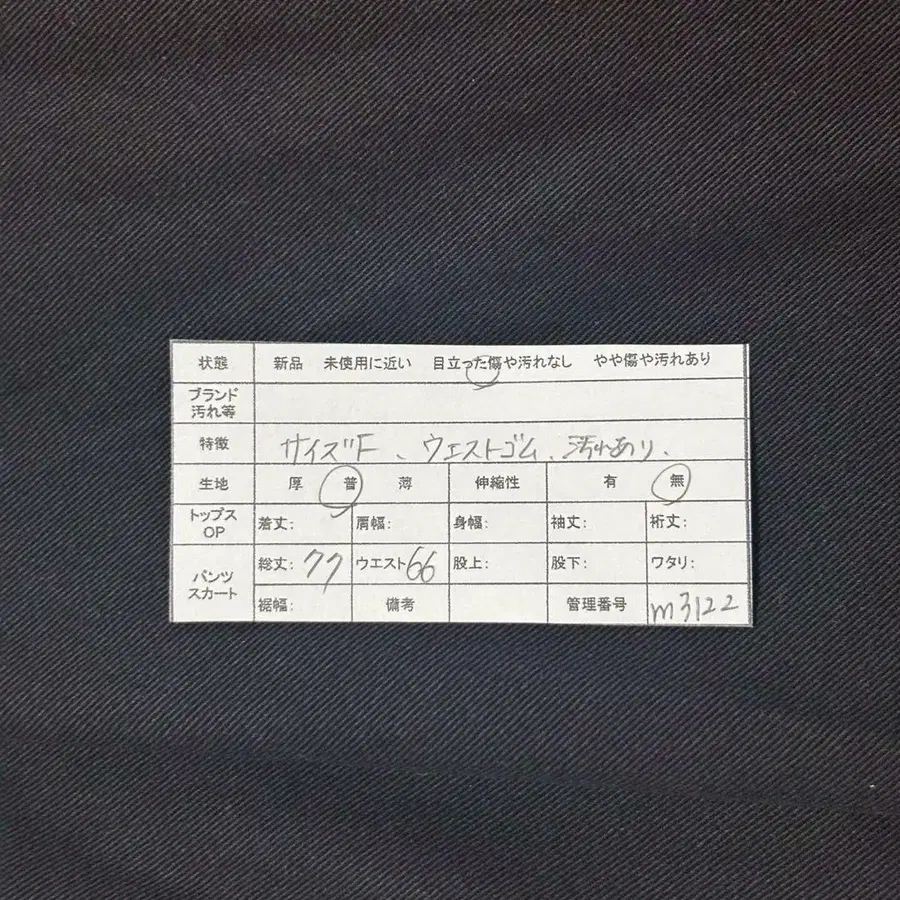 状態 新品 未使用に近い 目立った傷や汚れなし やや傷や汚れあり
ブランド
汚れ等
特徴 サイズF、ウエストゴム、汚れあり、
生地 厚 普 薄 伸縮性 有 無
トップス
OP
着丈: 肩幅: 身幅: 袖丈: 裄丈:
パンツ
スカート
総丈: 77 ウエスト 66 股上: 股下: ワタリ:
裾幅: 備考 管理番号 m3122